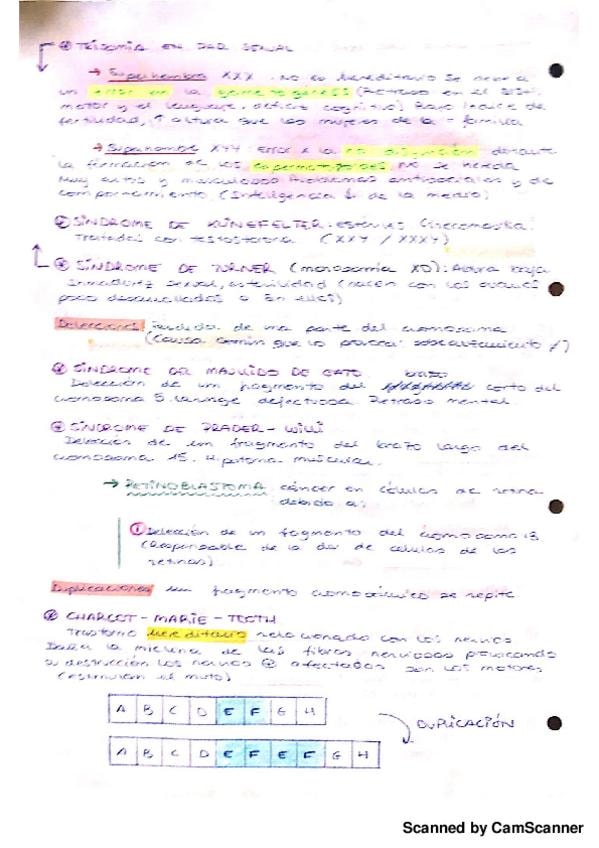 TRISOMÍA EN PAR SEXUAL
→ Superhembra XXX. No es hereditario se debe a
un error en la gametogénesis (Retraso en el
motor y el lenguaje, déficit cognitivo) Bajo índice de
fertilidad, ↑ altura que las mujeres de la = familia
→ Superhombre XYY. Error x la no disyunción durante
la formación de los espermatozoides, NO se hereda
Muy altos y musculosos Problemas antisociales y de
comportamiento. (Inteligencia ↓ de la media)
SÍNDROME DE KLINEFELTER: estériles Ginecomastia.
Tratados con testosterona (XXY / XXXY)
SÍNDROME DE TURNER (monosomía XO): Altura baja
sexual, esterilidad (nacen con los ovarios
poco desarrollados o sin ellos)
Deleciones: Pérdida de una parte del cromosoma
(Causa común que lo provoca: sobrecruzamiento ≠)
SÍNDROME DEL MAULLIDO DE GATO
Deleción de un fragmento del brazo corto del
cromosoma 5. Laringe defectuosa. Retraso mental
SÍNDROME DE PRADER-WILLI
Deleción de un fragmento del brazo largo del
cromosoma 15. Hipotonía muscular.
→ RETINOBLASTOMA: cáncer en células de retina
debido a:
① Deleción de un fragmento del cromosoma 13
(Responsable de la de células de las
retinas)
Duplicaciones un fragmento cromosómico se repite
CHARCOT-MARIE-TOOTH
Trastorno hereditario relacionado con los nervios
Daña la mielina de las fibras nerviosas provocando
su destrucción los nervios ⊕ afectados son los motores
(estimulan el mvto)
A B C D E F G H
DUPLICACIÓN
A B C D E F E F G H
Scanned by CamScanner